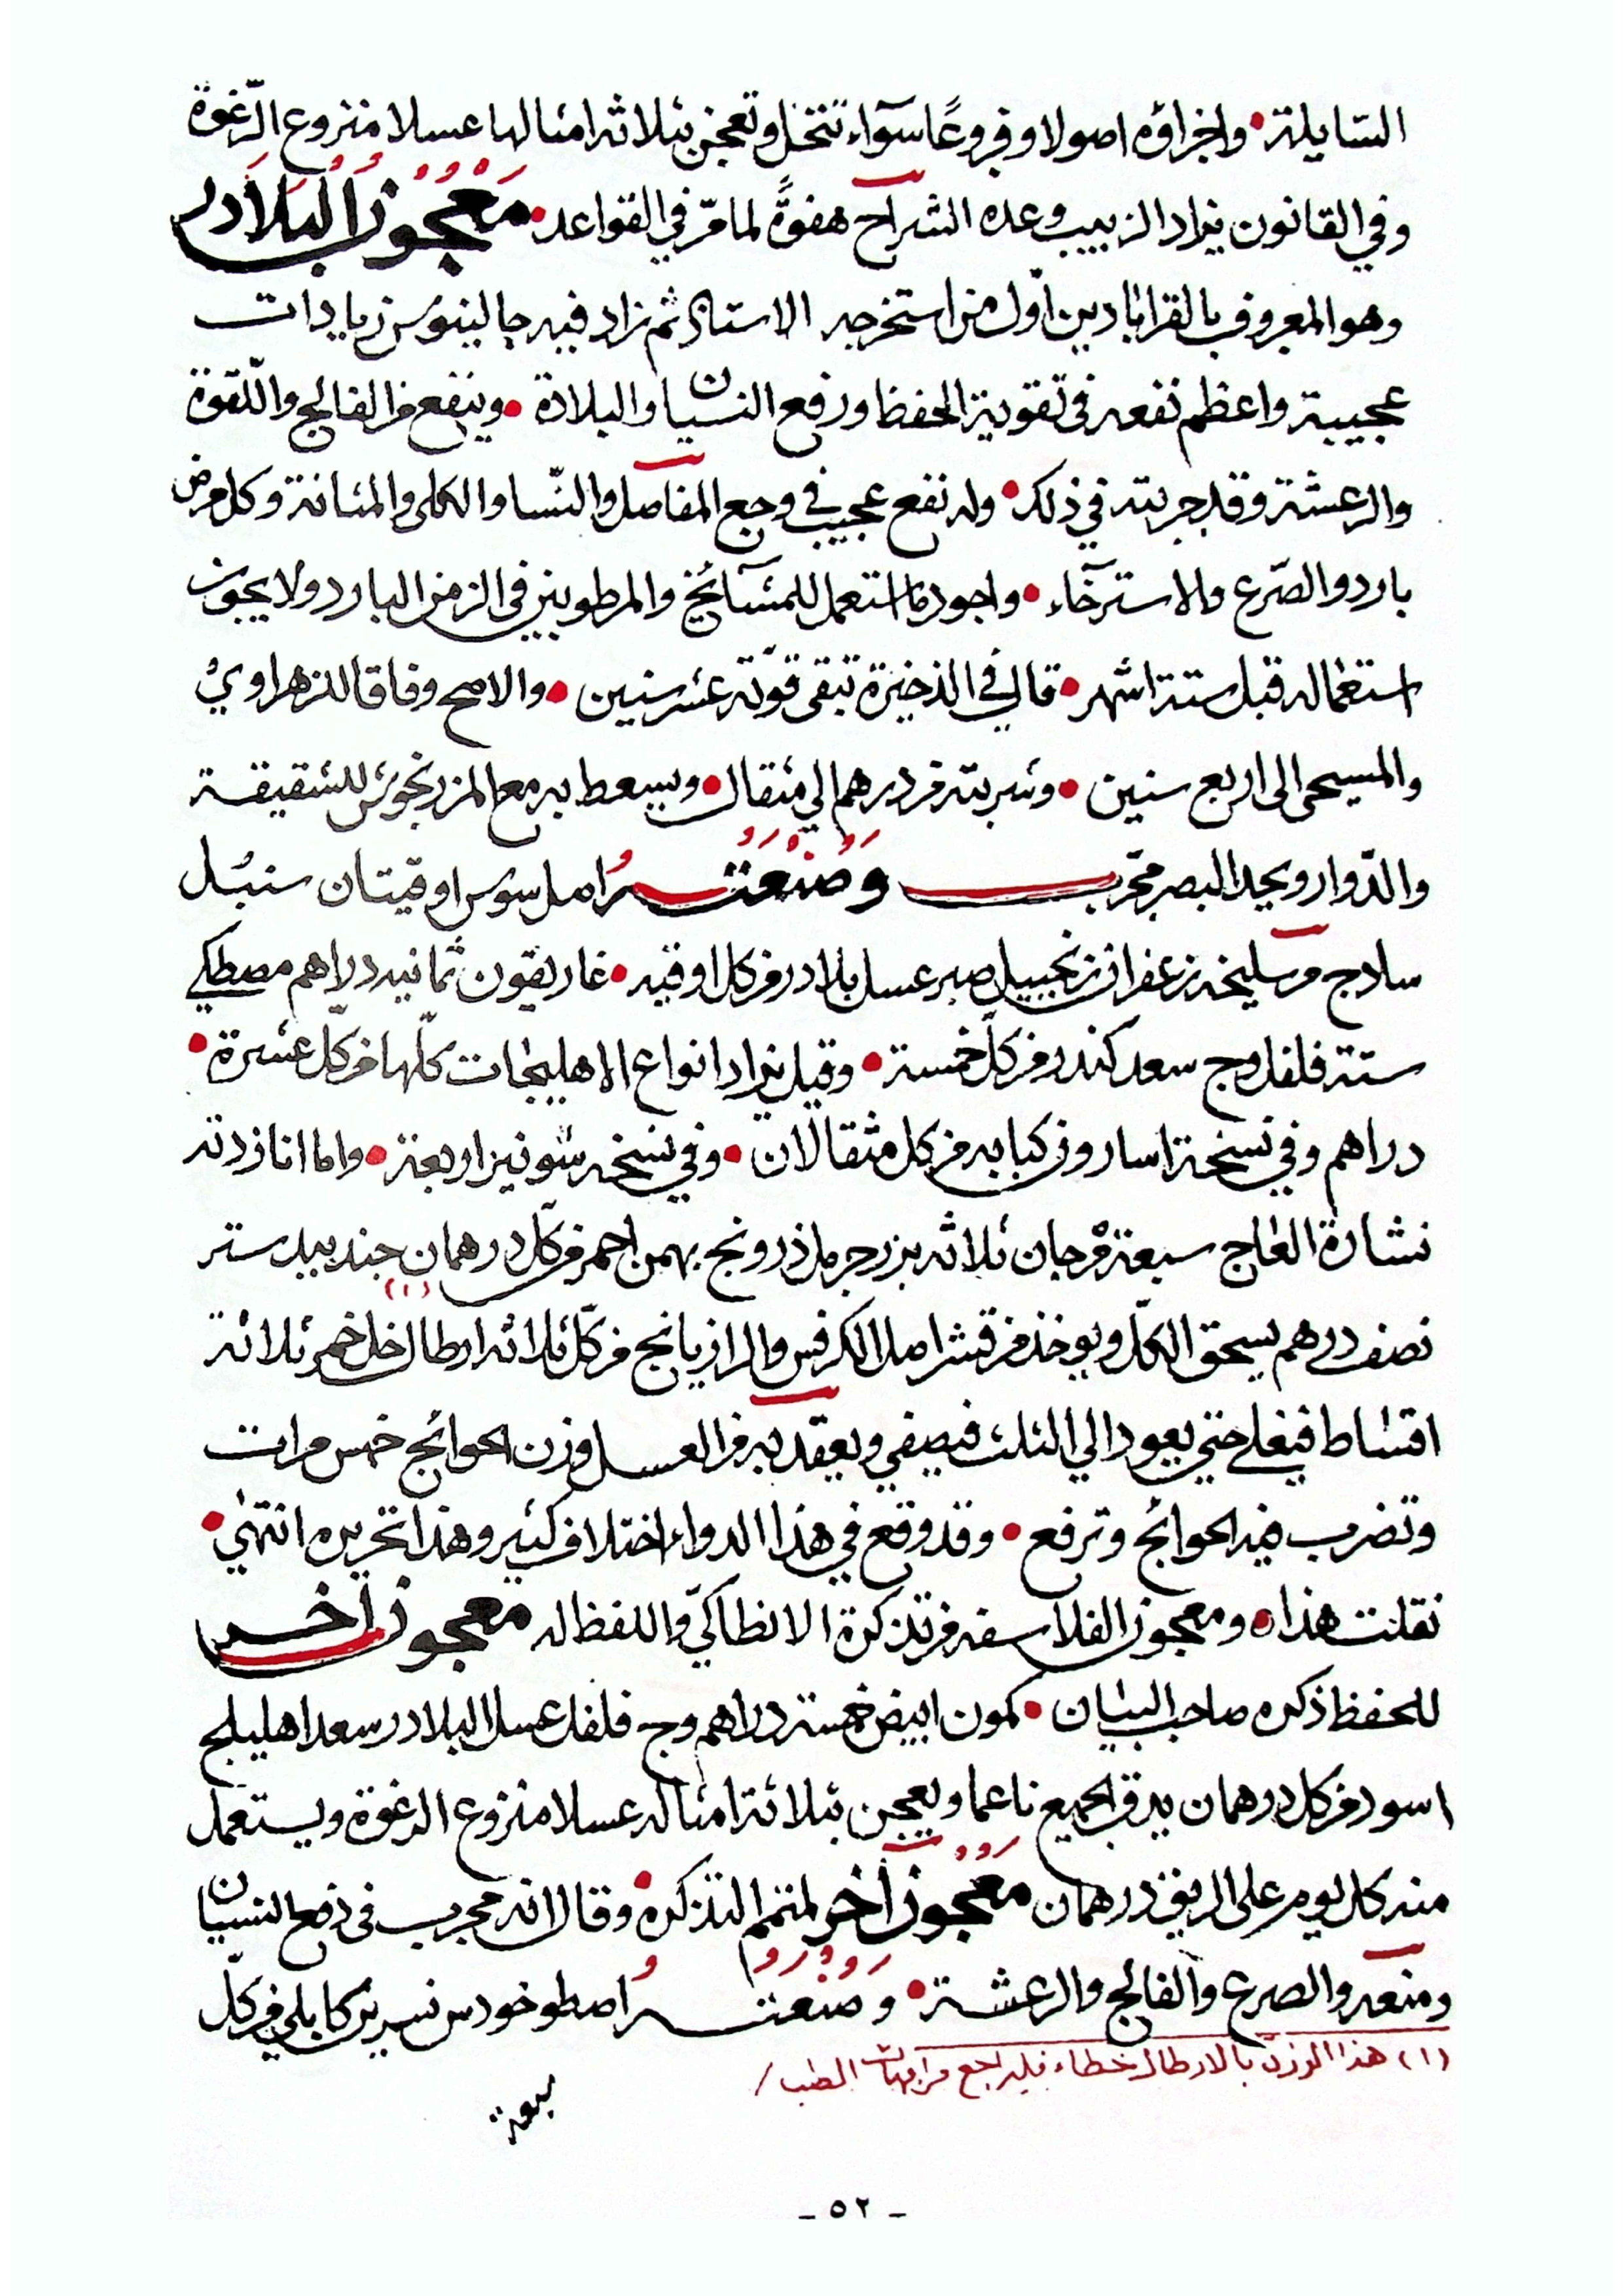 السّايلة • واجزاؤه اصولا وفروعًا سوآء تنخل وتعجن بثلاثة امثالها عسلا منزوع الرّغوة
وفي القانون يزاد الزبيب وعده الشراح هفوةً لما مرّ في القواعد • مَعْجُونُ البَلَادر
وهو المعروف بالقراباديـن اوّل من استخرجه الاستاذ ثم زاد فيه جالينوس زيادات
عجيبة واعظم نفعه في تقوية الحفظ ورفع النسيان والبلادة • وينفع من الفالج واللّقوة
والرعشة وقد جربته في ذلك • وله نفع عجيب في وجع المفاصل والنّسا والكلى والمثانة وكل مرض
بارد والصّرع والاسترخآء • واجود ما استعمل للمشآئخ والمرطوبين في الزمن البارد ولا يجوز
استعماله قبل ستة اشهر • قال في الذخيرة تبقى قوّته عشر سنين • والاصح وفاقا للزهراوي
والمسيحى الى اربع سنين • وشربته من درهم الي مثقال • ويسعط به مع المرزنجوش للشقيقة
والدّوار ويحد البصر مجرّب وَصُنْعَتُهُ اصل سوس اوقيتان سنبل
سادج مر سليخه زعفران زنجبيل صبر عسل بلادر من كل اوقيه • غاريقون ثمانيه دراهم مصطكي
ستة فلفل وج سعد كندر من كلّ خمسة • وقيل يزاد انواع الاهليلجات كلّها من كلّ عشرة •
دراهم وفي نسخة اسارون كبابه من كل مثقالان • وفي نسخه شونيز اربعة • واما انا زدته
نشارة العاج سبعة مرجان ثلاثه بزر حرمل ذرونج بهمن احمر من كلّ درهمان جندبيدستر
(١)
نصف درهم يسحق الكلّ ويوخذ من قشر اصل الكرفس والرازيانج من كلّ ثلاثه ارطال خل خمر ثلاثة
اقساط فيغلي حتي يعود الي الثلث فيصفي ويعقد به من العسل وزن الحوائج خمس مرات
وتضرب فيه الحوائج وترفع • وقد وقع في هذا الدواء اختلاف كثير وهذا تحريره انتهى •
نقلت هذا • ومعجون الفلاسفه من تذكرة الانطاكيّ واللفظ له معجون اخر
للحفظ ذكره صاحب البيان • كمون ابيض خمسة دراهم وج فلفل عسل البلادر سعد اهليلج
اسود من كل درهمان يدق الجميع ناعما ويعجن بثلاثة امثاله عسلا منزوع الرغوة ويستعمل
منه كل يوم على الريق درهمان مَعْجُون آخر لمتمم التذكره • وقال انه مجرب في دفع النسيان
ومنعه والصرع والفالج والرعشة • وَصُنْعَتُهُ اصطوخودس نسرين كابلي من كلّ
(١) هذا الوزن بالارطال خطاء فليراجع من امهات الطب /
سبعة
- ٥٢ -